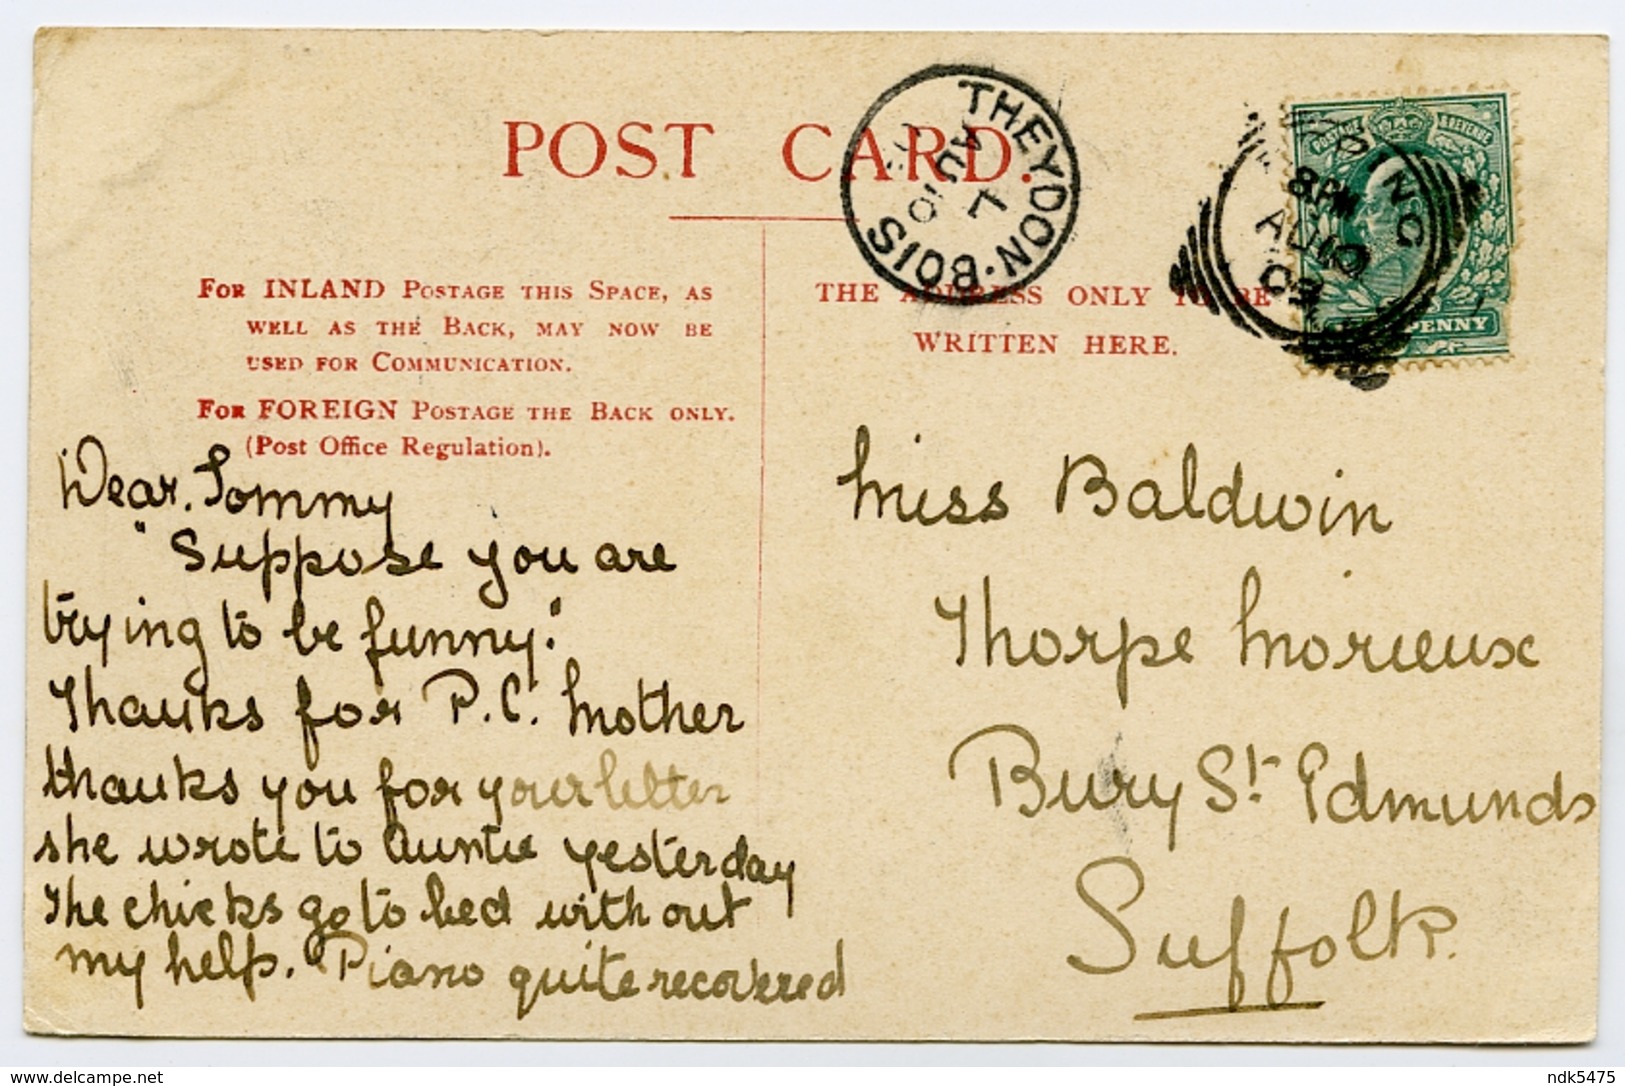 POST CARD.
THEYDON·BOIS
L
AU 10
PING
8 PM
AU 10
09
POSTAGE & REVENUE
PENNY
For INLAND Postage this Space, as
well as the Back, may now be
used for Communication.
For FOREIGN Postage the Back only.
(Post Office Regulation).
THE ADDRESS ONLY TO BE
WRITTEN HERE.
Dear. Tommy
"Suppose you are
trying to be funny."
Thanks for P.C. Mother
thanks you for your letter
she wrote to Auntie yesterday
The chicks go to bed with out
my help. Piano quite recovered
Miss Baldwin
Thorpe Morieux
Bury St. Edmunds
Suffolk.
www.delcampe.net
ndk5475